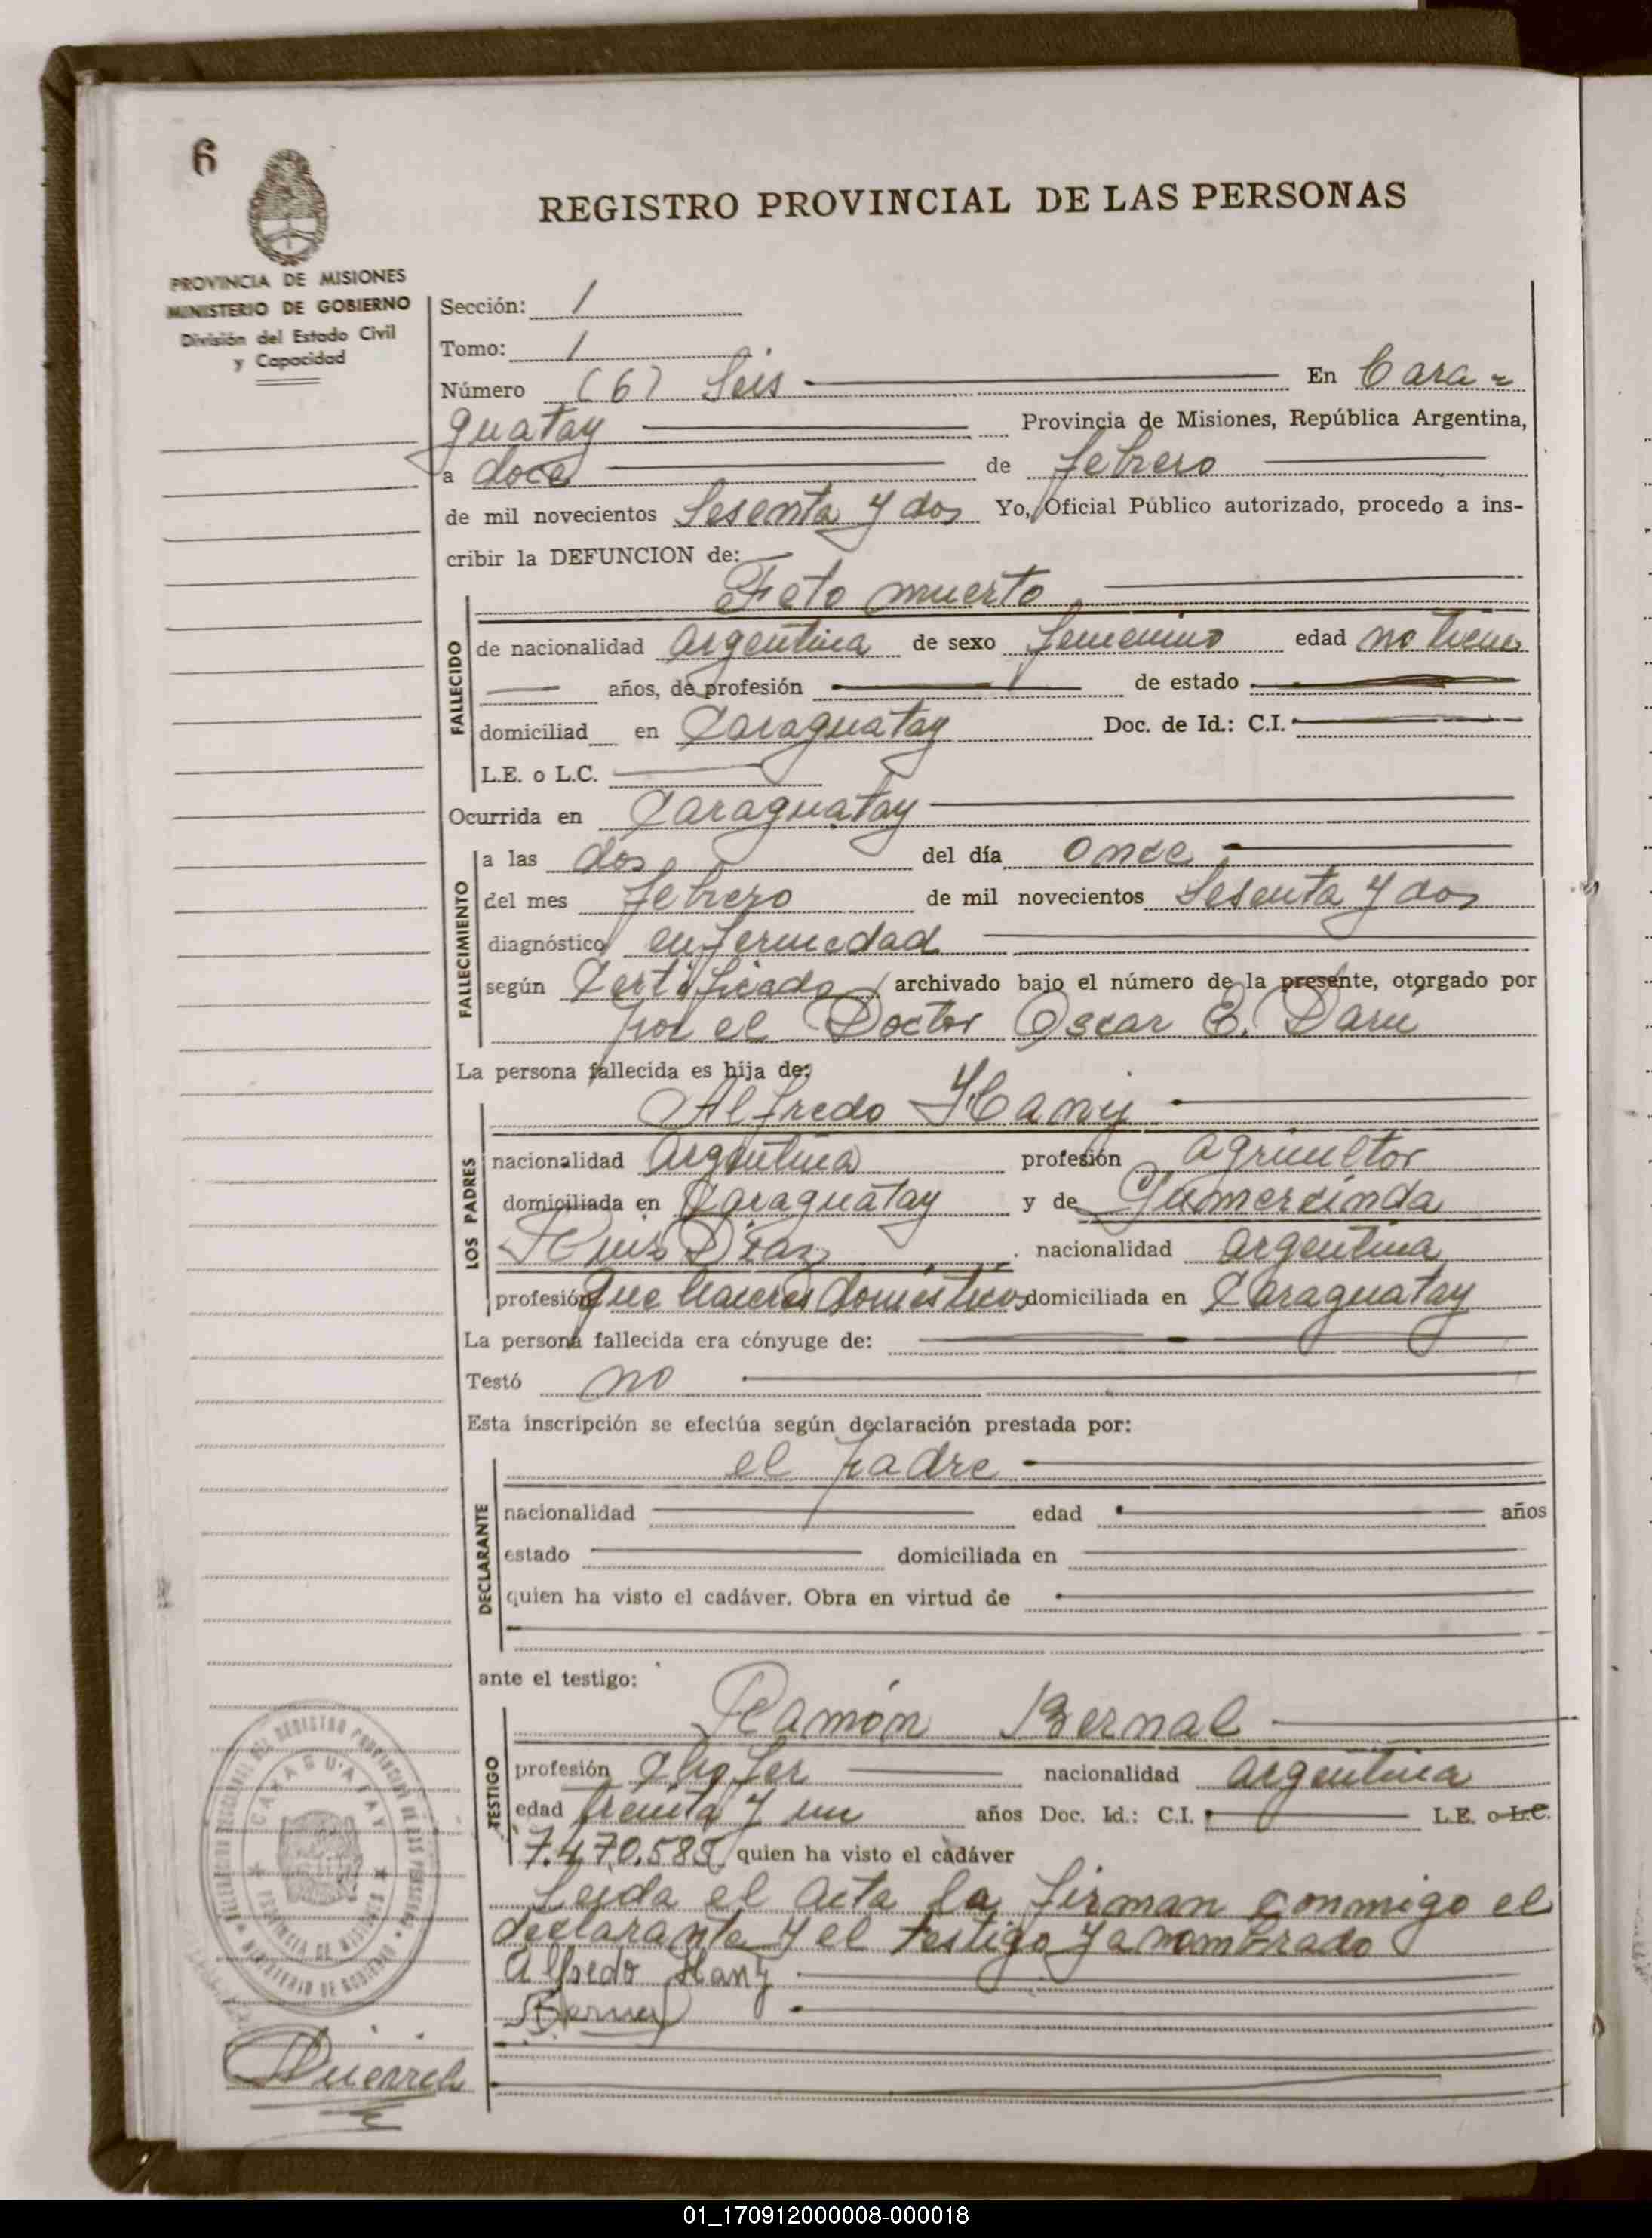 6
REGISTRO PROVINCIAL DE LAS PERSONAS
PROVINCIA DE MISIONES
MINISTERIO DE GOBIERNO
División del Estado Civil
y Capacidad
Sección: 1
Tomo: 1
Número (6) Seis En Cara-
guatay Provincia de Misiones, República Argentina,
a doce de febrero
de mil novecientos Sesenta y dos Yo, Oficial Público autorizado, procedo a ins-
cribir la DEFUNCION de:
Feto muerto
FALLECIDO
de nacionalidad argentina de sexo femenino edad no tiene
años, de profesión de estado
domiciliad en Caraguatay Doc. de Id.: C.I.
L.E. o L.C.
Ocurrida en Caraguatay
FALLECIMIENTO
a las dos del día once
del mes febrero de mil novecientos Sesenta y dos
diagnóstico enfermedad
según Certificado archivado bajo el número de la presente, otorgado por
por el Doctor Oscar E. Darú
La persona fallecida es hija de:
LOS PADRES
Alfredo Hany
nacionalidad argentina profesión agricultor
domiciliada en Caraguatay y de Gumercinda
Díaz nacionalidad argentina
profesión que haceres domésticos domiciliada en Caraguatay
La persona fallecida era cónyuge de:
Testó no
Esta inscripción se efectúa según declaración prestada por:
DECLARANTE
el padre
nacionalidad edad años
estado domiciliada en
quien ha visto el cadáver. Obra en virtud de
ante el testigo:
TESTIGO
Ramón Bernal
profesión Chofer nacionalidad argentina
edad treinta y un años Doc. Id.: C.I. L.E. o L.C.
7.470.585 quien ha visto el cadáver
Leida el acta la firman conmigo el
declarante y el testigo ya nombrado
Alfredo Hany
Bernal
REGISTRO PROVINCIAL DE LAS PERSONAS
CARAGUATAY
PROVINCIA DE MISIONES
MINISTERIO DE GOBIERNO
01_170912000008-000018